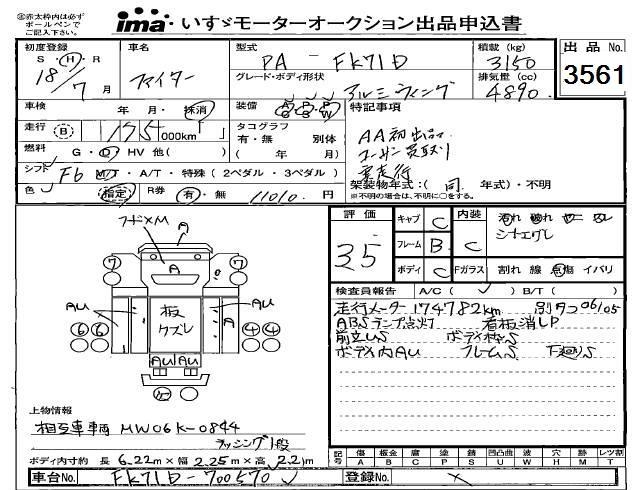 ㊟赤太枠内は必ず
ボールペンで
ご記入下さい。
ima いすゞモーターオークション出品申込書
初度登録 車名 型式 積載 (kg) 出品 No.
S・H・R ファイター PA - FK71D 3150 3561
18/7 月
グレード・ボディ形状 アルミウィング 排気量 (cc) 4890
車検 年 月・抹消 装備 A/C P/S P/W 特記事項
走行 B 175,000km タコグラフ 有・無 別体 ( 年 月)
AA初出品
ユーザー買取り
実走行
燃料 G・D・HV 他( )
シフト F6 M/T・A/T・特殊 ( 2ペダル・3ペダル )
架装物年式:( 同 年式)・不明
※不明の場合は、不明に○をする。
色 指定 R券 有・無 11010 円
評価 3.5
キャブ C 内装 C 汚れ 破れ ヤニ スレ
シートエグレ
フレーム B
ボディ C Fガラス 割れ 線 点傷 イバリ
フードメM
A
A
7 7
AU AU
板
クズレ
A
6 6 4 4
AU AU
検査員報告 A/C ( ) B/T ( )
走行メーター174782km 別タコ06/05
ABSランプ点灯 看板消し P
前立US ボデメ枠S
ボデメ内AU フレームS 下廻りS
上物情報
相互車輌 MW06K-0844
ラッシング1段
ボディ内寸約 長 6.22m×幅 2.25m×高 2.2m
記号 傷 A 板金 B 腐 C 塗 P 錆 S 凹凸曲 U 波 W 穴 H 外 M レツ割 T
車台No. FK71D-700570 登録No.